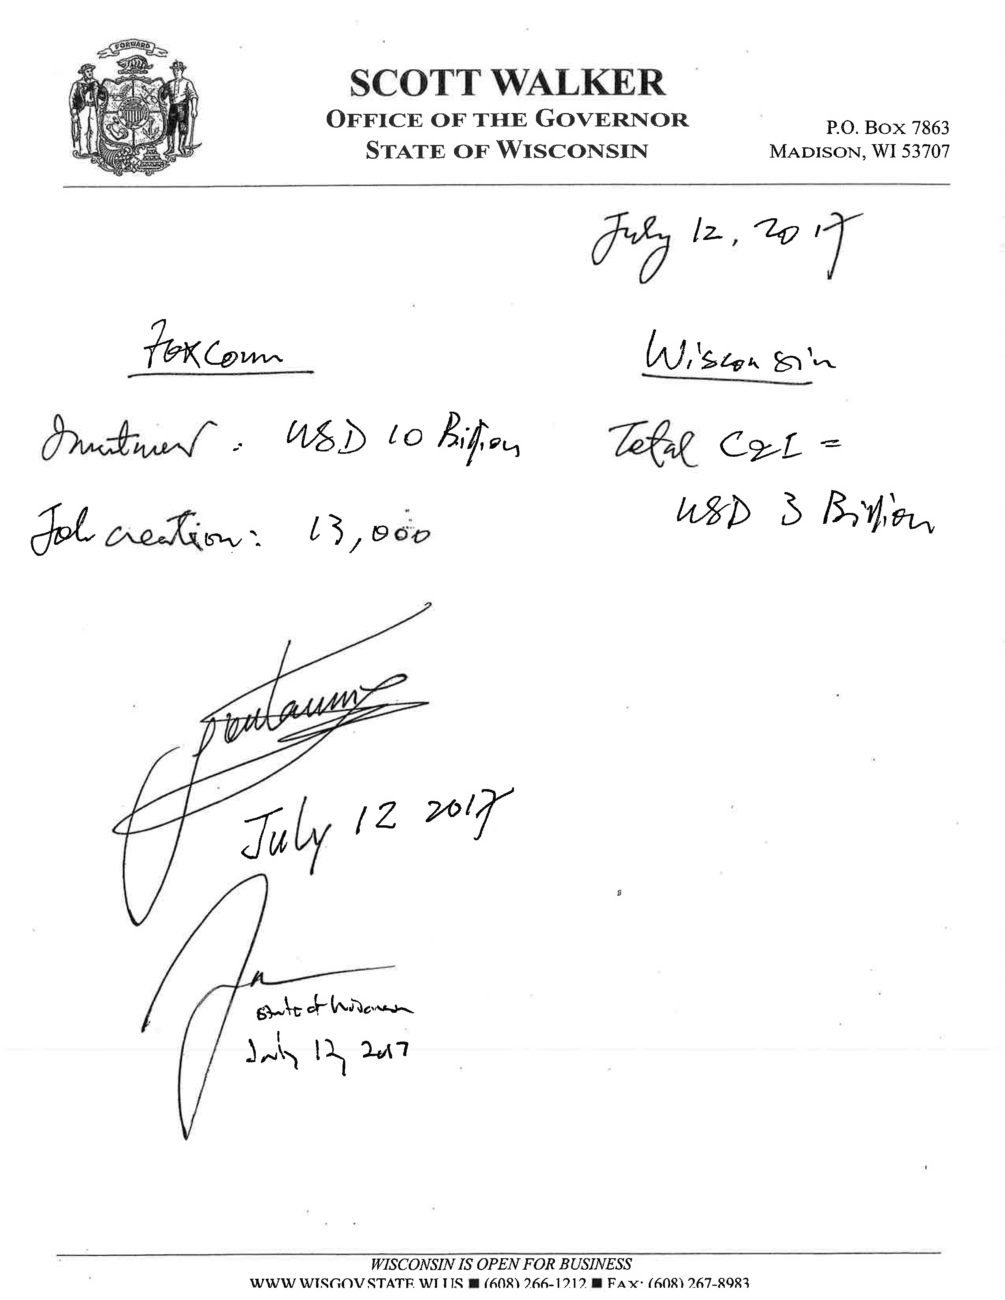 FORWARD
SCOTT WALKER
OFFICE OF THE GOVERNOR
STATE OF WISCONSIN
P.O. BOX 7863
MADISON, WI 53707
July 12, 2017
Foxconn
Investment : USD 10 Billion
Job creation: 13,000
Wisconsin
Total C&I =
USD 3 Billion
July 12 2017
State of Wisconsin
July 12, 2017
WISCONSIN IS OPEN FOR BUSINESS
WWW.WISGOV.STATE.WI.US ■ (608) 266-1212 ■ FAX: (608) 267-8983